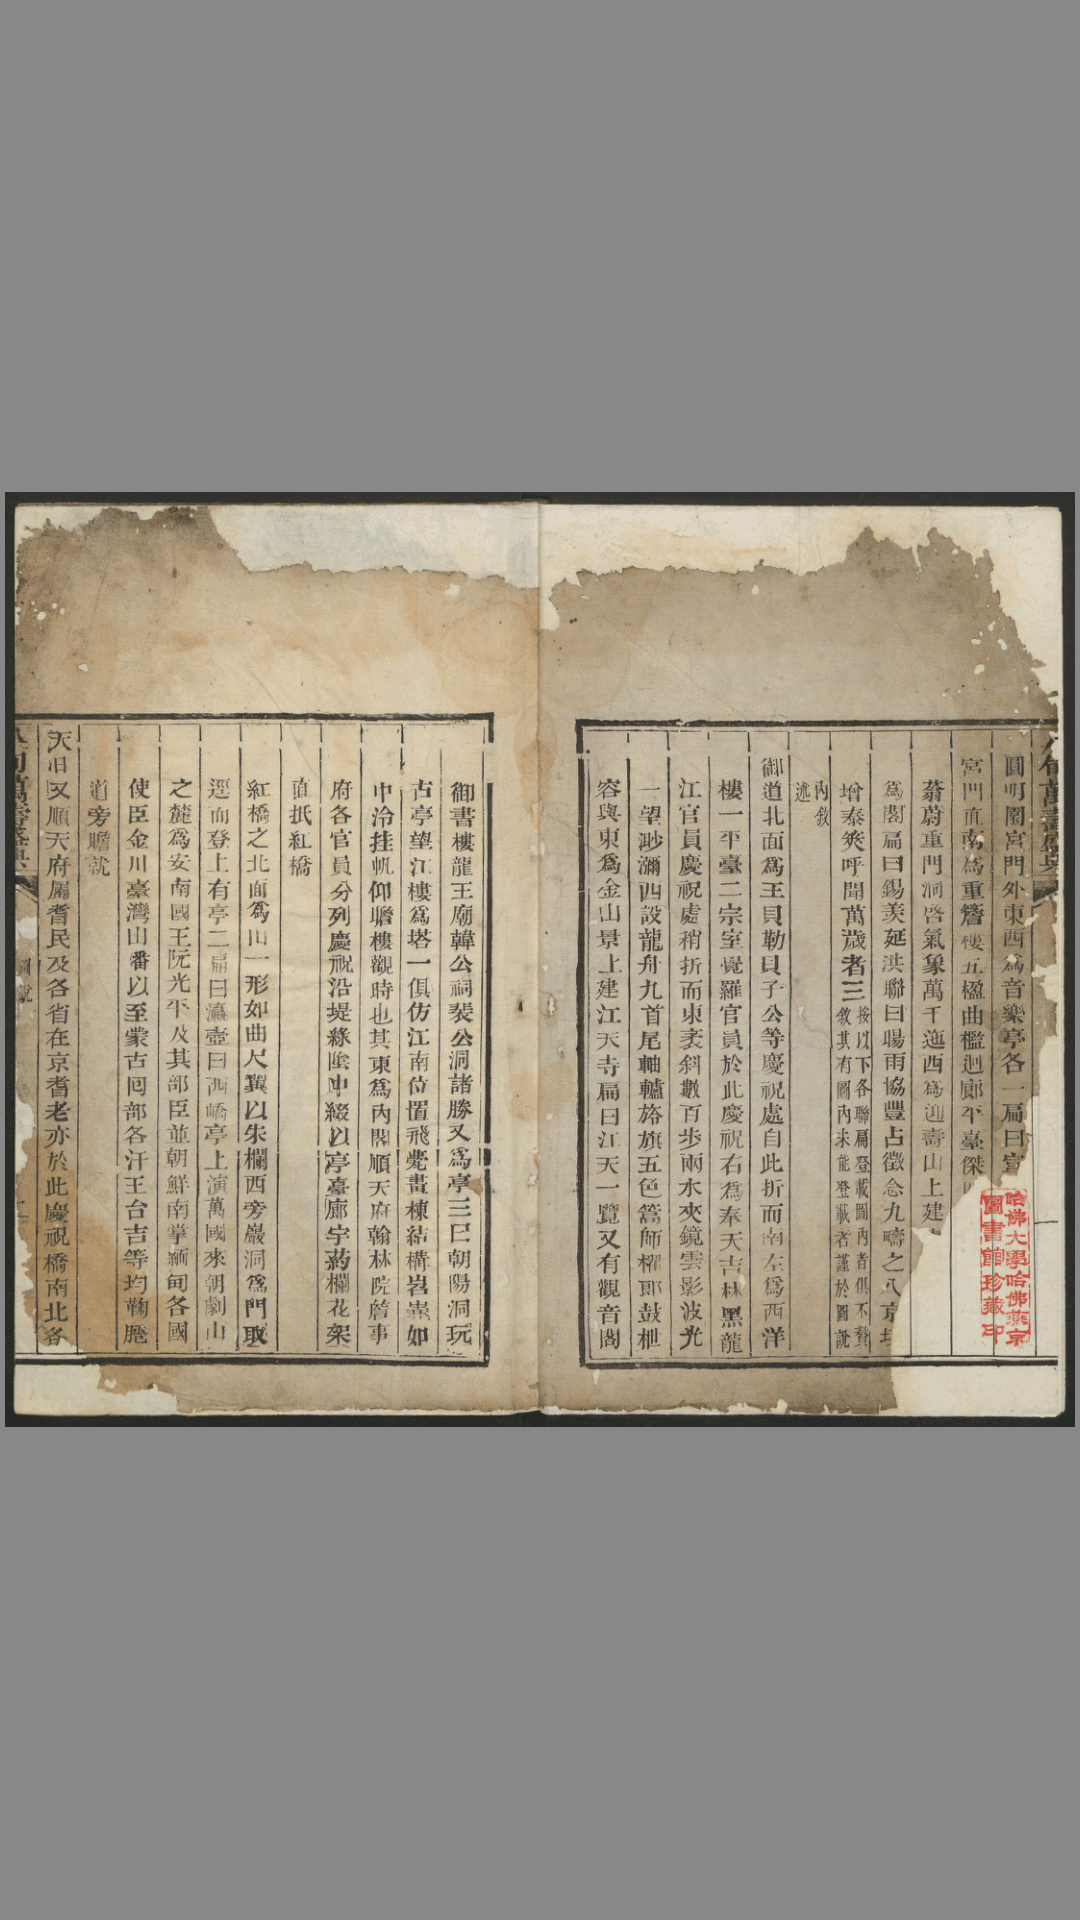 八旬萬壽盛典
圓明園宮門外東西爲音樂亭各一扁曰宣
宮門面南爲重簷樓五楹曲檻迴廊平臺傑
蓊蔚重門洞啓氣象萬千迤西爲迎壽山上建
爲閣扁曰錫羨延洪聯曰暘雨協豐占徵念九疇之八京垓
增泰筴呼聞萬歲者三按以下各聯扁登載圖內者俱不贅
敘其有圖內未能登載者謹於圖說
內敘
述
御道北面爲王貝勒貝子公等慶祝處自此折而南左爲西洋
樓一平臺二宗室覺羅官員於此慶祝右爲奉天吉林黑龍
江官員慶祝處稍折而東袤斜數百步兩水夾鏡雲影波光
一望渺瀰西設龍舟九首尾軸轤旂旗五色篙師櫂郎鼓枻
容與東爲金山景上建江天寺扁曰江天一覽又有觀音閣
御書樓龍王廟韓公祠裴公洞諸勝又爲亭三曰朝陽洞玩
古亭望江樓爲塔一俱仿江南位置飛甍畫棟結構岧嵽如
中泠挂帆仰瞻樓觀時也其東爲內閣順天府翰林院詹事
府各官員分列慶祝沿堤綠陰中綴以亭臺廊宇葯欄花架
直抵紅橋
紅橋之北面爲山一形如曲尺翼以朱欄西旁巖洞爲門取
逕而登上有亭二扁曰瀛壺曰西嶠亭上演萬國來朝劇山
之麓爲安南國王阮光平及其部臣並朝鮮南掌緬甸各國
使臣金川臺灣山番以至蒙古回部各汗王台吉等均鞠䠆
道旁瞻就
天日又順天府屬耆民及各省在京耆老亦於此慶祝橋南北各
八旬萬壽盛典
圖說
哈佛大學哈佛燕京
圖書館珍藏印